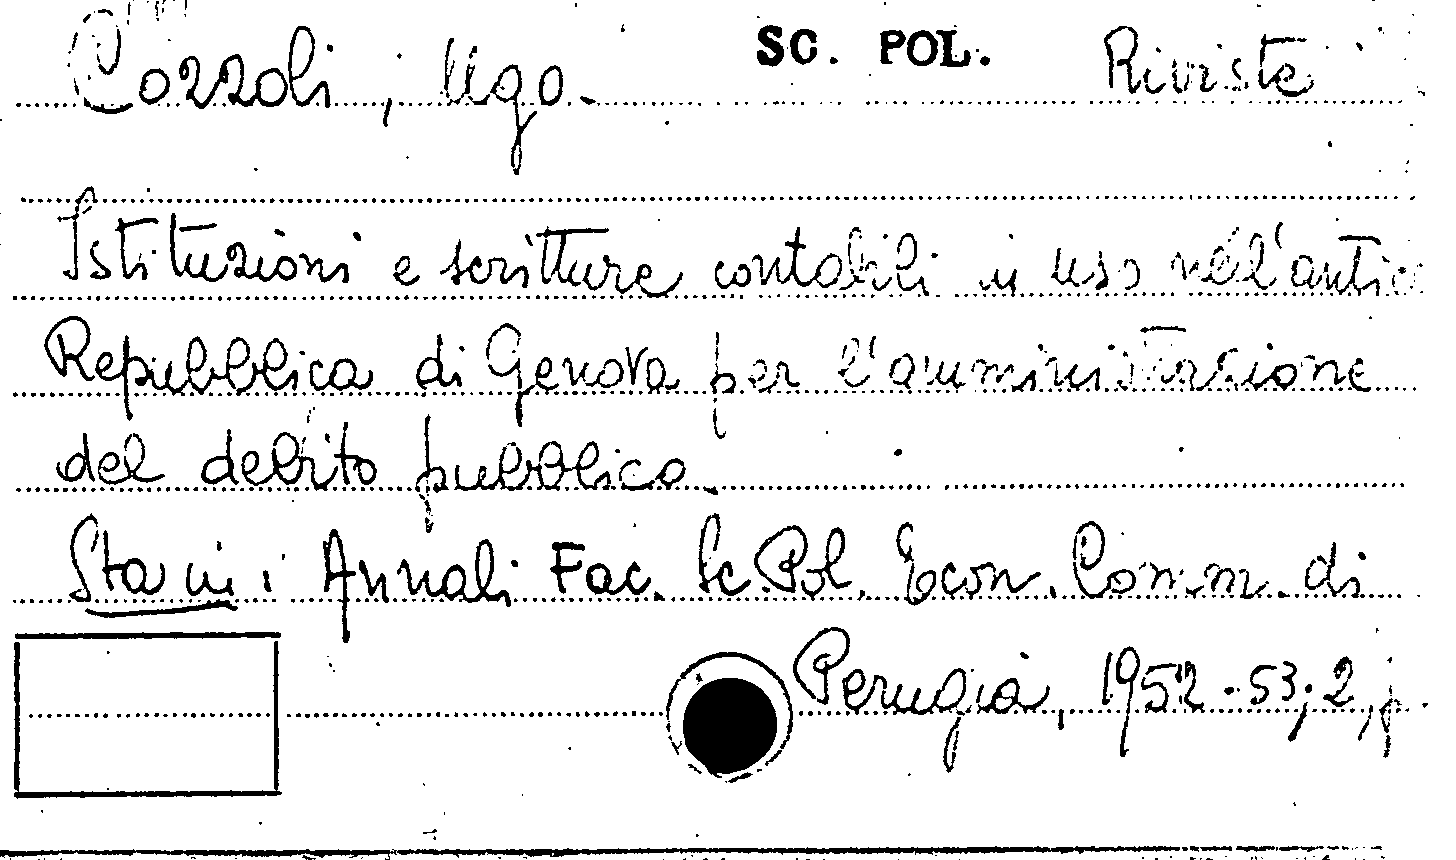 Cozzoli, Ugo. SC. POL. Riviste
Istituzioni e scritture contabili in uso nell'antica
Repubblica di Genova per l'amministrazione
del debito pubblico.
Sta in: Annali Fac. Sc. Pol. Econ. Comm. di
Perugia, 1952-53; 2, p.